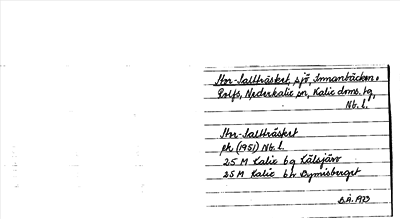 Stor-Saltträsket, sjö, Innanbäcken,
Rolfs, Nederkalix sn, Kalix doms. tg,
Nb. l.
Stor-Saltträsket
ek (1951) Nb. l.
25 M Kalix bg Lålsjärv
25 M Kalix bk Bymisberget
B.Ä. 1973